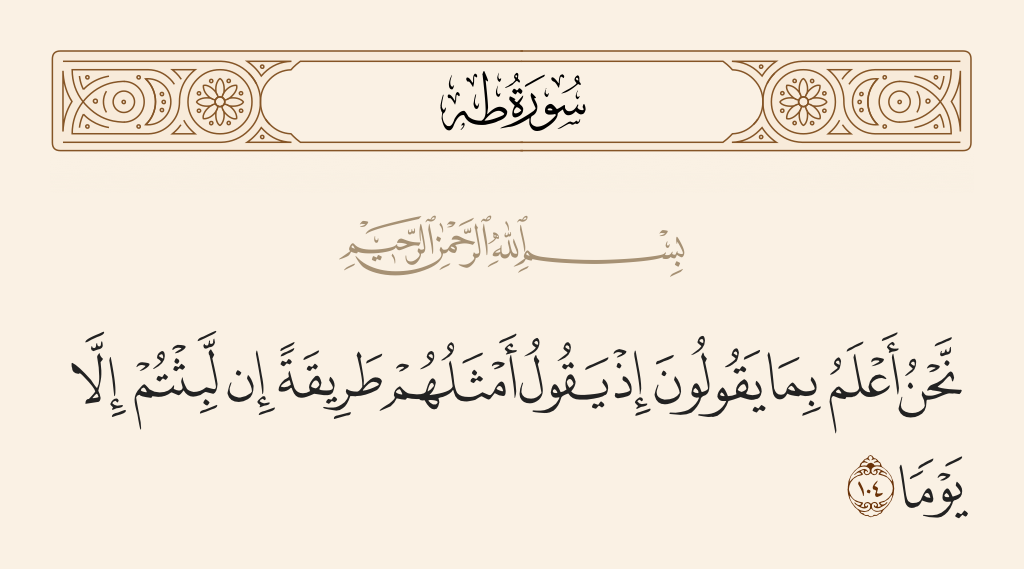 سُورَةُ طه
بِسْمِ ٱللَّهِ ٱلرَّحْمَٰنِ ٱلرَّحِيمِ
نَّحْنُ أَعْلَمُ بِمَا يَقُولُونَ إِذْ يَقُولُ أَمْثَلُهُمْ طَرِيقَةً إِن لَّبِثْتُمْ إِلَّا
يَوْمًا ١٠٤